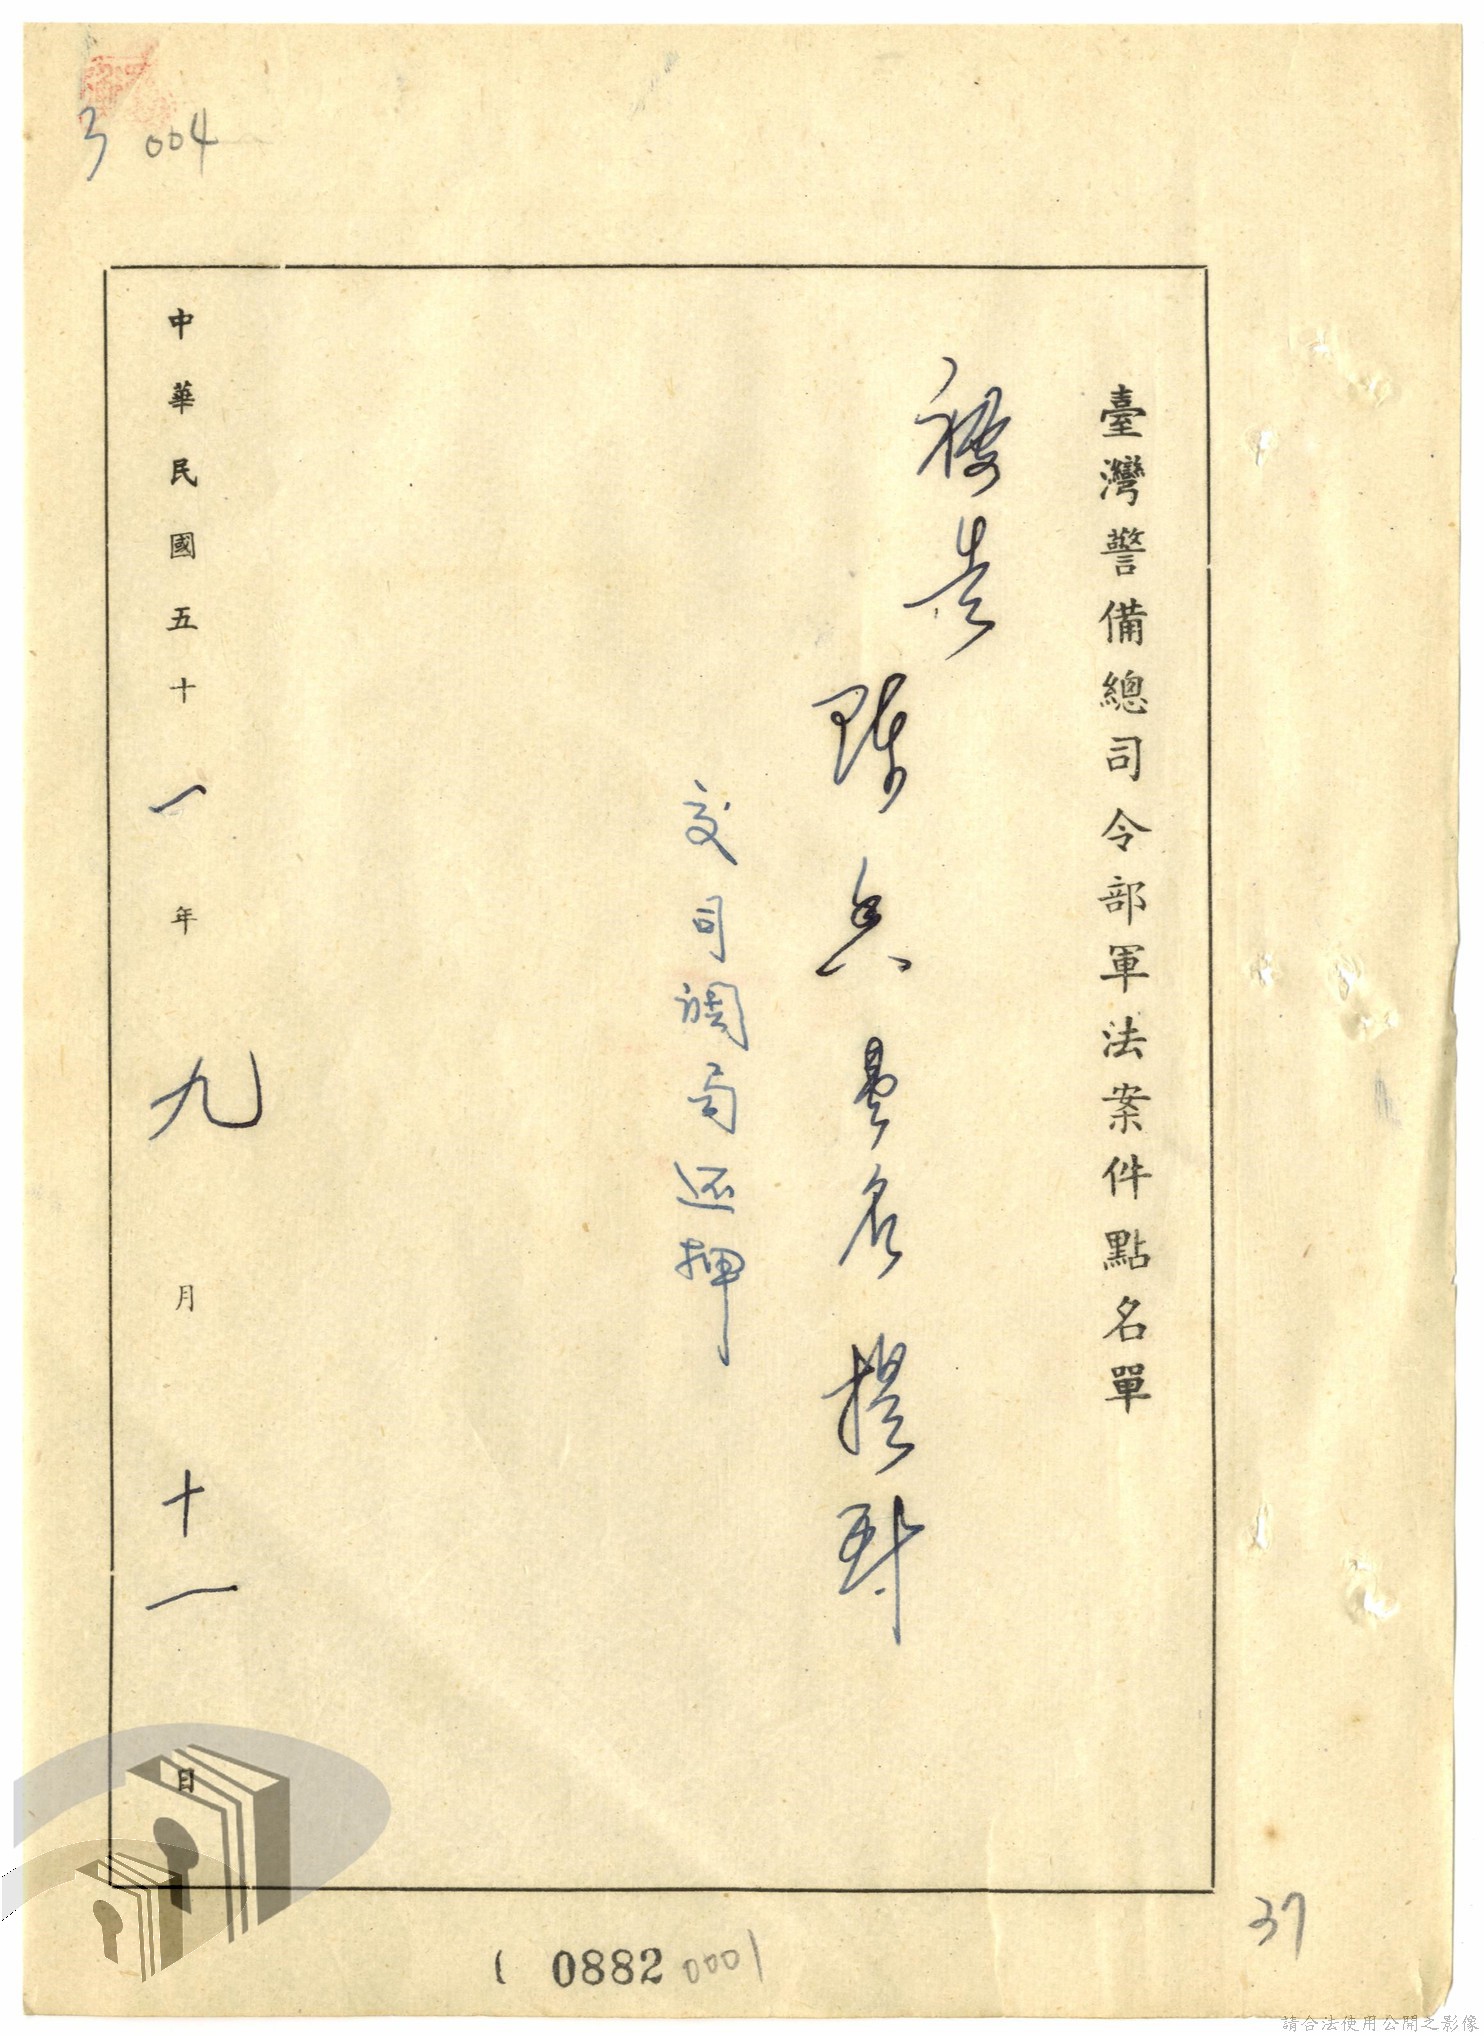 3 004
臺灣警備總司令部軍法案件點名單
被告
陳兵
名提到
交司調局還押
中華民國五十一年九月十一日
37
( 0882 0001
請合法使用公開之影像